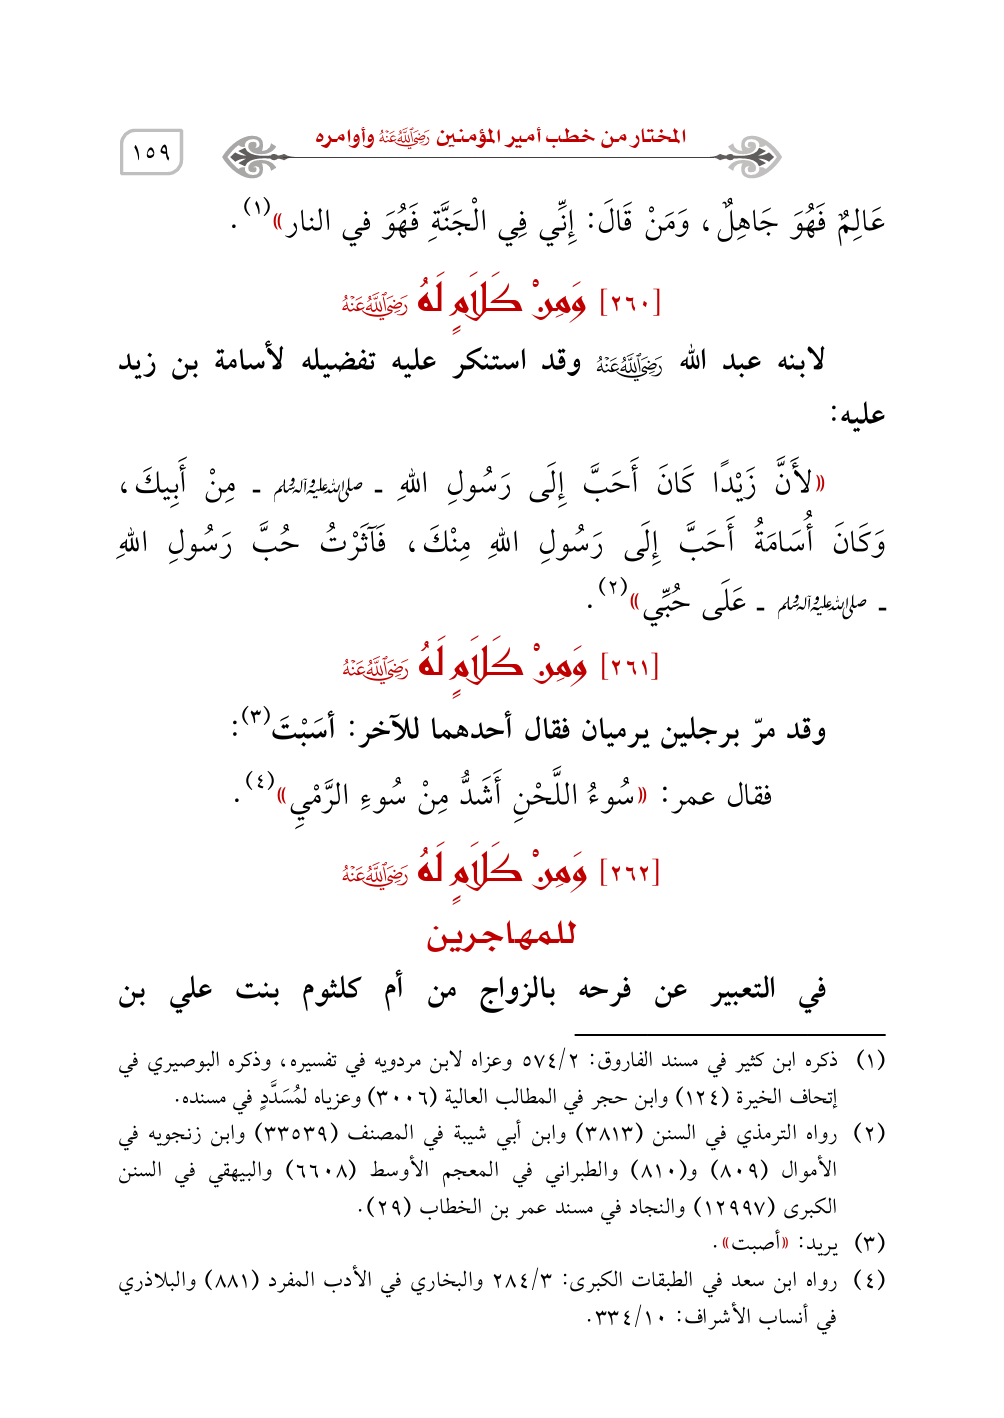 المختار من خطب أمير المؤمنين رَضِيَ اللَّهُ عَنْهُ وأوامره
١٥٩
عَالِمٌ فَهُوَ جَاهِلٌ، وَمَنْ قَالَ: إِنِّي فِي الْجَنَّةِ فَهُوَ في النار»(١).
[٢٦٠] وَمِنْ كَلَامٍ لَهُ رَضِيَ اللَّهُ عَنْهُ
لابنه عبد الله رَضِيَ اللَّهُ عَنْهُ وقد استنكر عليه تفضيله لأسامة بن زيد
عليه:
«لأَنَّ زَيْدًا كَانَ أَحَبَّ إِلَى رَسُولِ اللهِ ـ صلى الله عليه وآله وسلم ـ مِنْ أَبِيكَ،
وَكَانَ أُسَامَةُ أَحَبَّ إِلَى رَسُولِ اللهِ مِنْكَ، فَآثَرْتُ حُبَّ رَسُولِ اللهِ
ـ صلى الله عليه وآله وسلم ـ عَلَى حُبِّي»(٢).
[٢٦١] وَمِنْ كَلَامٍ لَهُ رَضِيَ اللَّهُ عَنْهُ
وقد مرّ برجلين يرميان فقال أحدهما للآخر: أسَبْتَ(٣):
فقال عمر: «سُوءُ اللَّحْنِ أَشَدُّ مِنْ سُوءِ الرَّمْيِ»(٤).
[٢٦٢] وَمِنْ كَلَامٍ لَهُ رَضِيَ اللَّهُ عَنْهُ
للمهاجرين
في التعبير عن فرحه بالزواج من أم كلثوم بنت علي بن
(١) ذكره ابن كثير في مسند الفاروق: ٥٧٤/٢ وعزاه لابن مردويه في تفسيره، وذكره البوصيري في
إتحاف الخيرة (١٢٤) وابن حجر في المطالب العالية (٣٠٠٦) وعزياه لمُسَدَّدٍ في مسنده.
(٢) رواه الترمذي في السنن (٣٨١٣) وابن أبي شيبة في المصنف (٣٣٥٣٩) وابن زنجويه في
الأموال (٨٠٩) و(٨١٠) والطبراني في المعجم الأوسط (٦٦٠٨) والبيهقي في السنن
الكبرى (١٢٩٩٧) والنجاد في مسند عمر بن الخطاب (٢٩).
(٣) يريد: «أصبت».
(٤) رواه ابن سعد في الطبقات الكبرى: ٢٨٤/٣ والبخاري في الأدب المفرد (٨٨١) والبلاذري
في أنساب الأشراف: ٣٣٤/١٠.